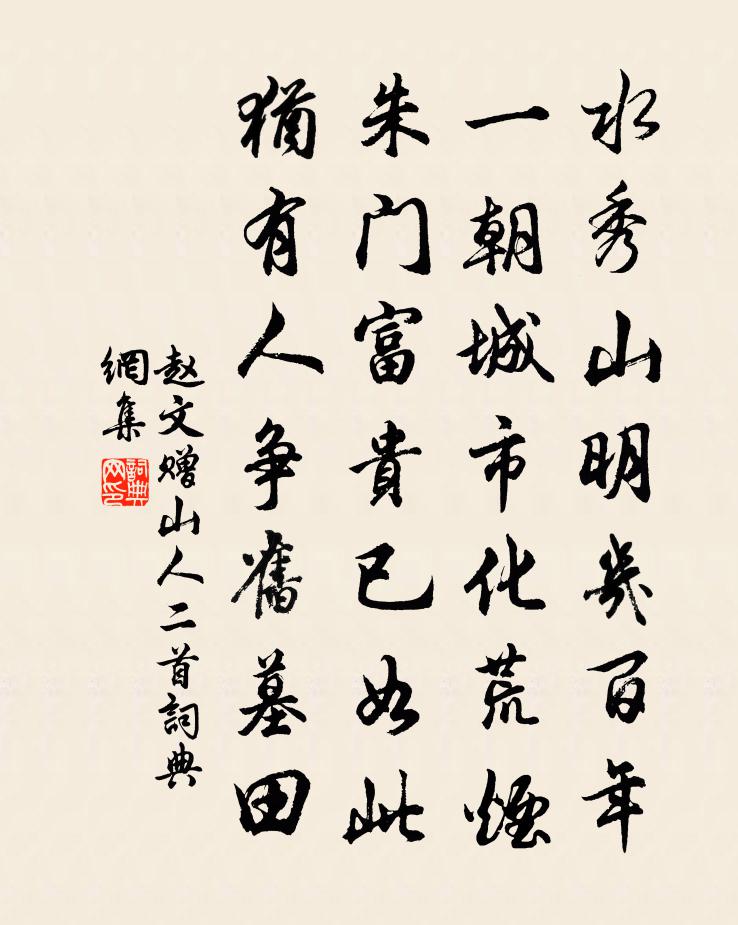 水秀山明幾百年
一朝城市化荒煙
朱门富貴已如此
猶有人争舊墓田
赵文赠山人二首詞典
網集
詞典
网印